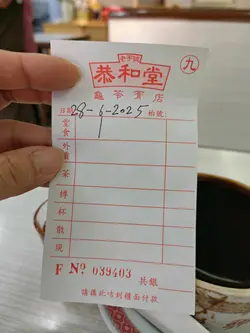 老字號
恭和堂
九
龜苓膏店
日期 28-6-2025 枱號
堂食 1
外賣
茶
樽
杯
散
現
F Nº 039403 共銀
請攜此咭到櫃面付款